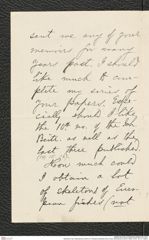 sent me any of your
memoirs for many
years past. I should
like much to com-
plete my series of
your Papers. Espe-
cially should I like
the 10th no. of the
Beitr. as well as the
last three published
How much could
I obtain a lot
of skeletons of Euro-
pean fishes (not